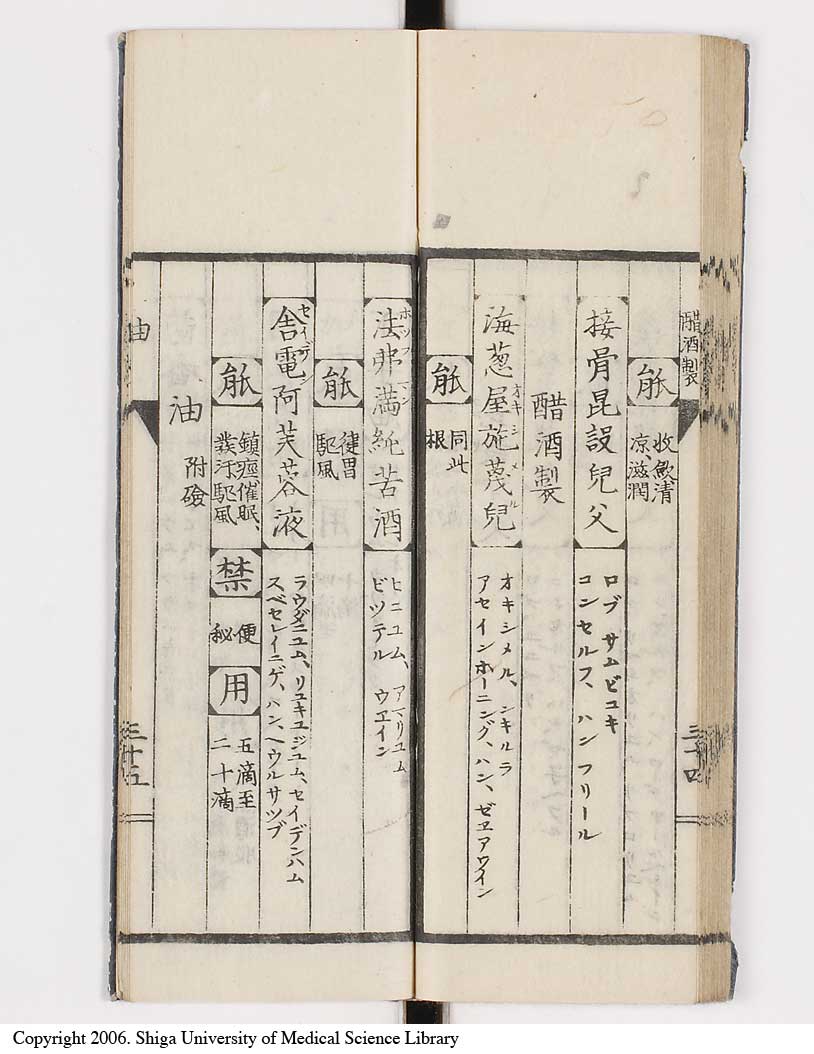 醋酒製
能
收斂清
凉、滋潤
接骨昆設兒父
ロブ サムビユキ
コンセルフ、ハン フリール
醋酒製
海葱屋施蔑兒
オキシメル
オキシメル、シキルラ
アセインホーニング、ハン、ゼヱアウイン
能
同此
根
三十四
法弗満純苦酒
ホツフマン
ヒニユム、アマリユム
ビツテル ウエイン
能
健胃
駆風
舎電阿芙蓉液
セイデン
ラウダニユム、リユキユジユム、セイデンハム
スベセレイニゲ、ハン、ヘウルサツプ
能
鎮痙催眠、
發汗駆風
禁
便
秘
用
五滴至
二十滴
油
附礆
油
三十五
Copyright 2006. Shiga University of Medical Science Library